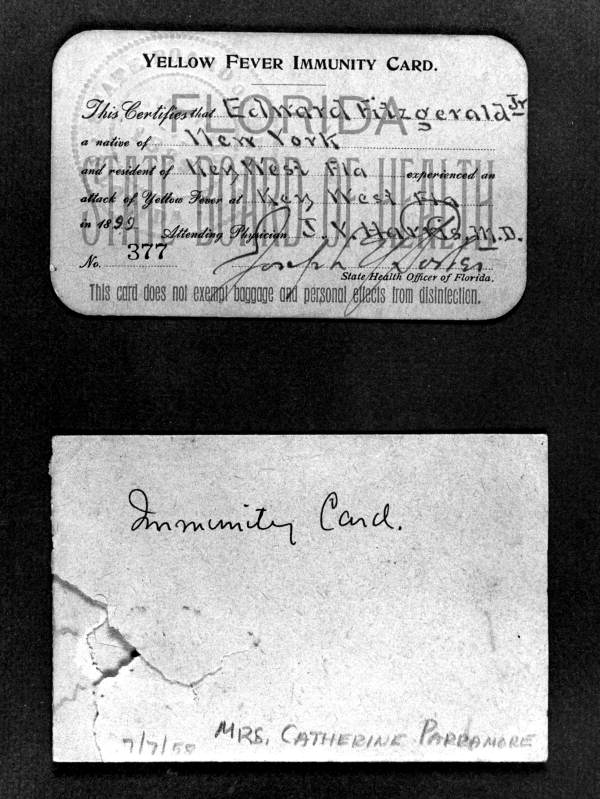 YELLOW FEVER IMMUNITY CARD.
This Certifies that Edward Fitzgerald Jr
a native of New York
and resident of Key West Fla experienced an
attack of Yellow Fever at Key West Fla
in 1899 Attending Physician J. V. Harris, M.D.
No. 377 Joseph Y Porter
State Health Officer of Florida.
This card does not exempt baggage and personal effects from disinfection.
FLORIDA
STATE BOARD OF HEALTH
Immunity Card.
7/7/58 MRS. CATHERINE PARRAMORE